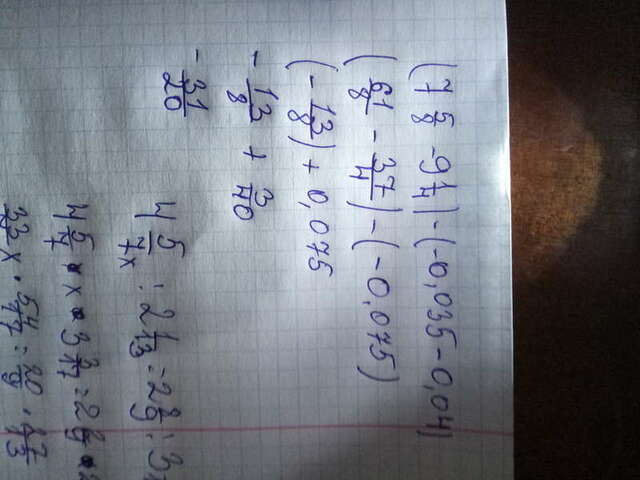 (7 5/8 - 9 1/4) - (-0,035 - 0,04)
(61/8 - 37/4) - (-0,075)
(- 13/8) + 0,075
- 13/8 + 3/40
- 31/20
4 5/7 x : 2 1/13 = 2 2/9 : 3
4 5/7 · x · 3 3/17 = 2 2/9 · 2
33/7 x · 54/17 = 20/9 · 27/13